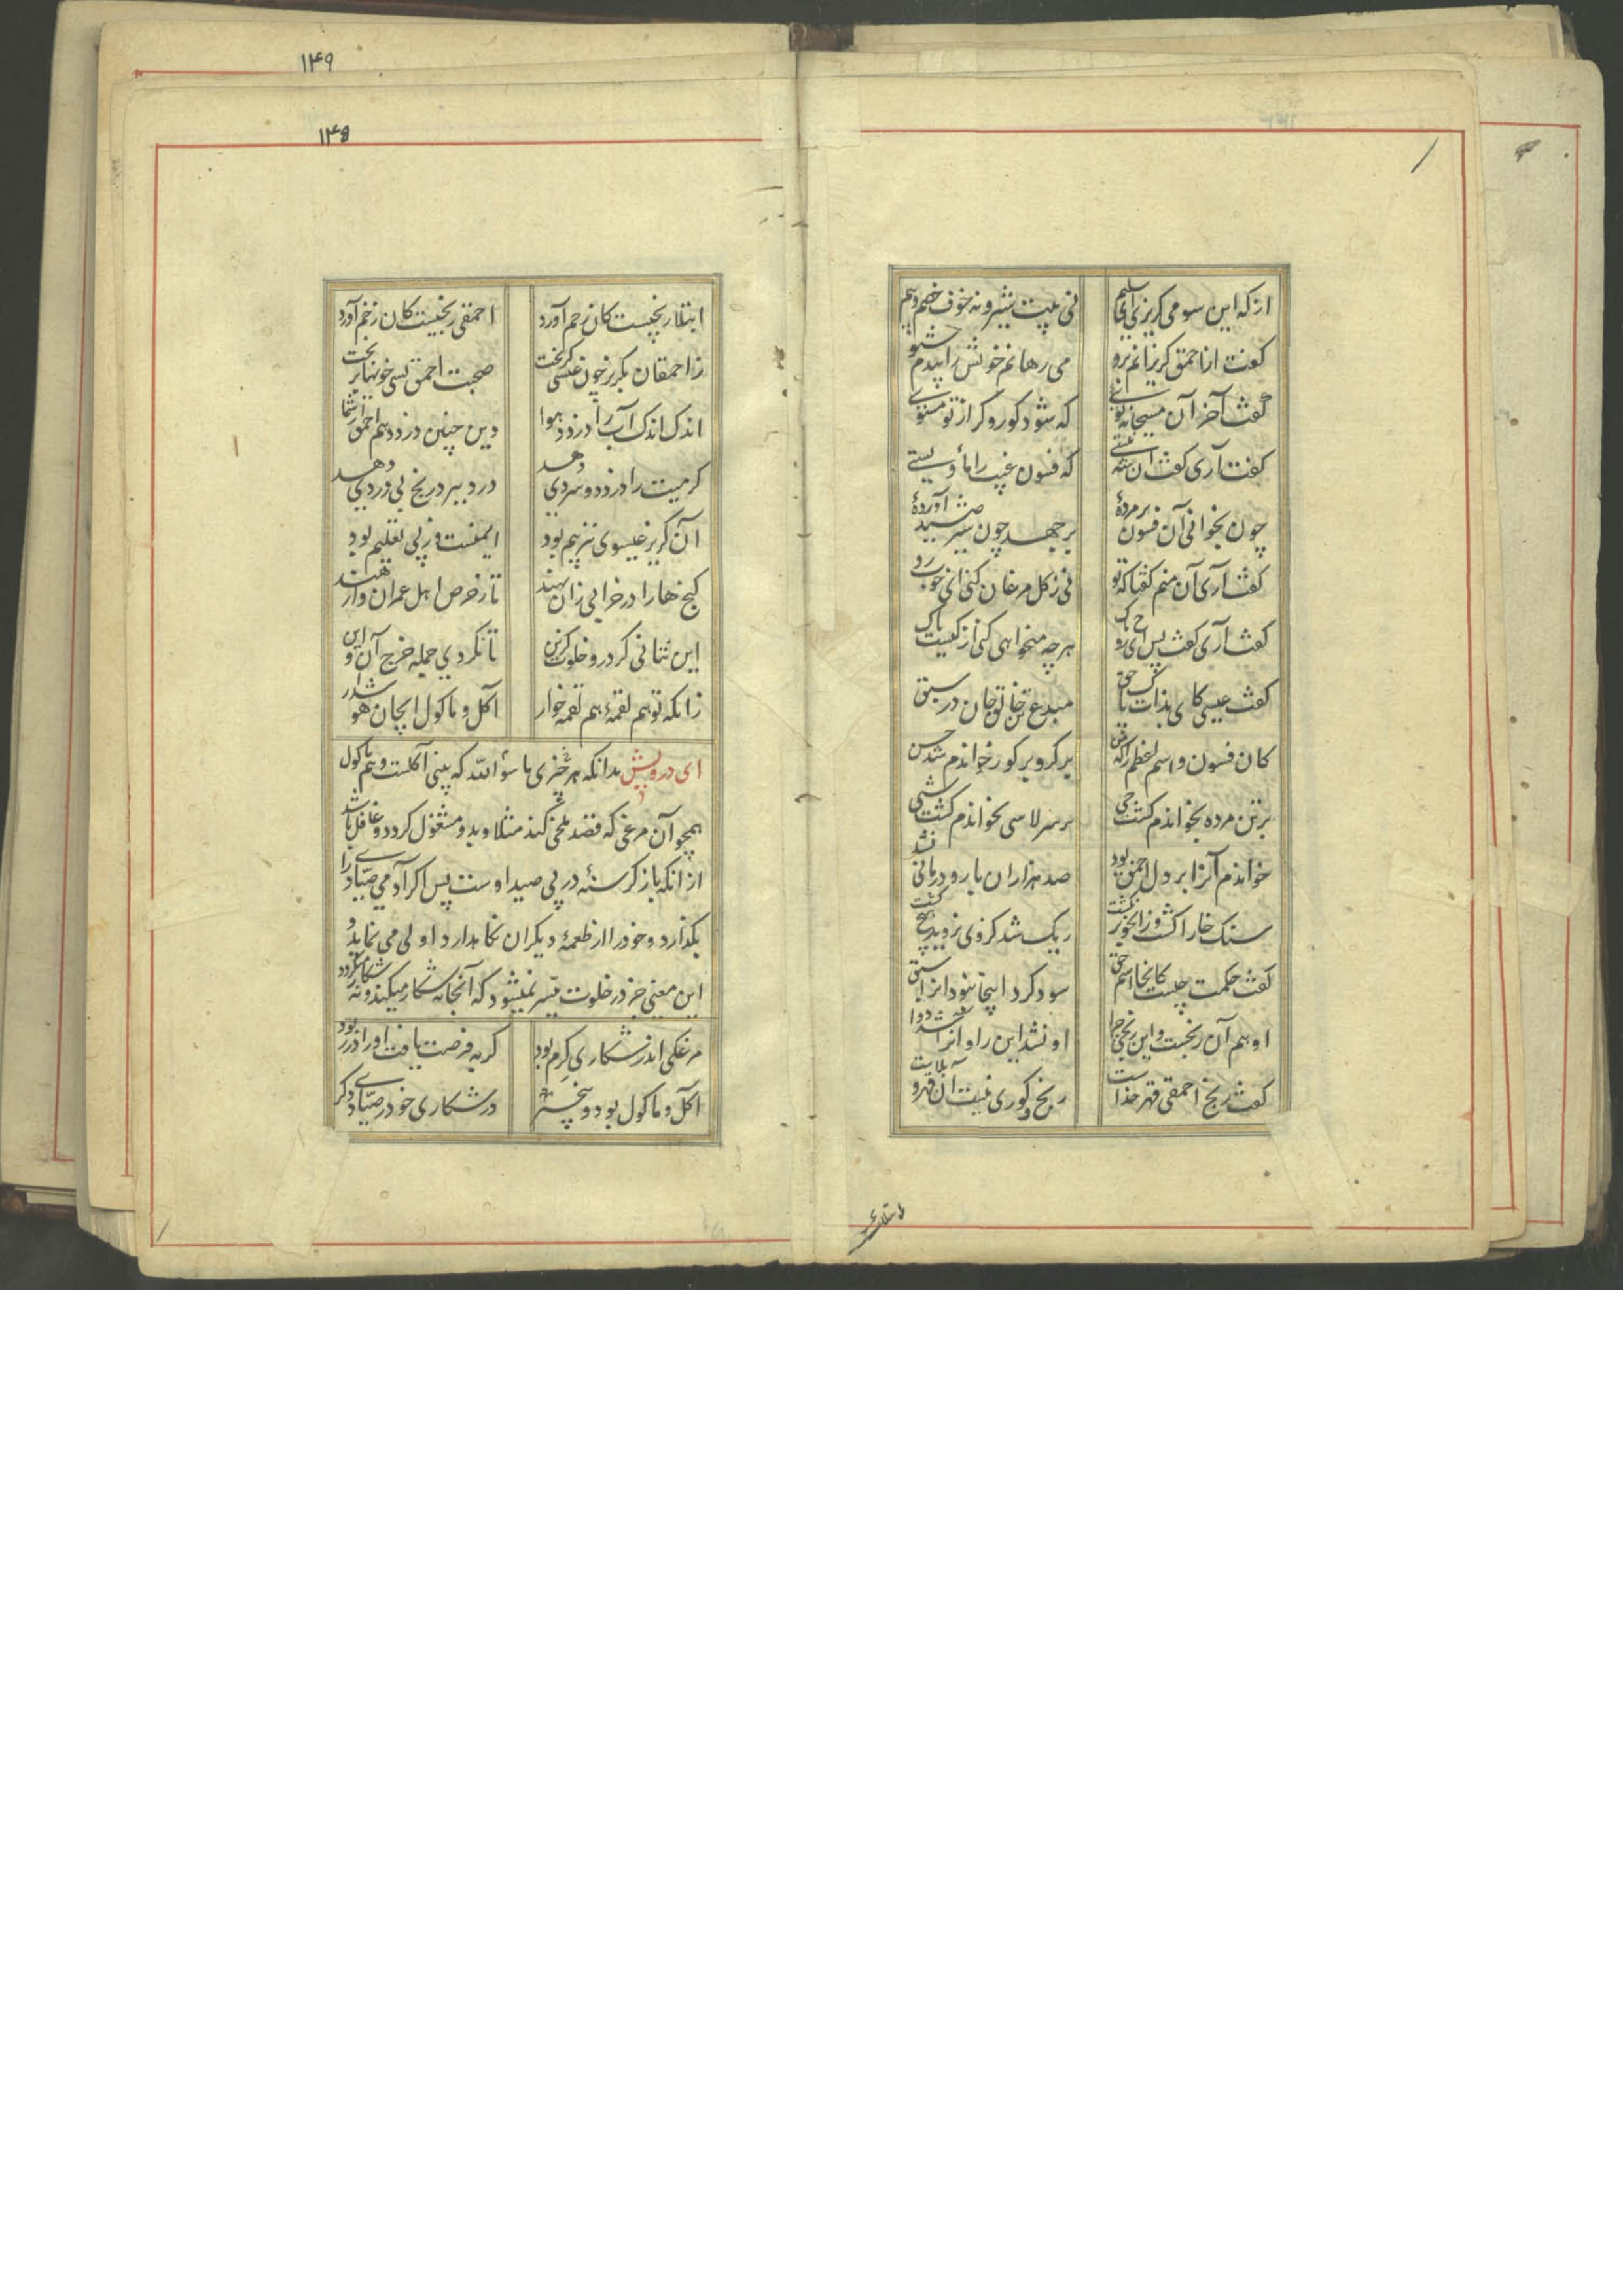 ۱۴۹
۱۴۵
از که این سو می کریزی ای سلیم نی پیت شیر و نه خوف خصم و بیم
کفت از احمق کریزانم برو می رهانم خویش را بندم مشو
کفت آخر آن مسیحا نه توئی که شود کور و کر از تو مستوی
کفت آری کفت آن شه نیستی که فسون غیب را مأویستی
چون بخوانی آن فسون بر مردهٔ برجهد چون شیر صید آوردهٔ
کفت آری آن منم کفتا که تو نی ز کل مرغان کنی ای خوب رو
کفت آری کفت پس ای روح پاک هرچه میخواهی کنی از کیست باک
کفت عیسی کای بذات پاک حق مبدع تن خالق جان در سبق
کان فسون و اسم اعظم را که من بر کر و بر کور خواندم شد حسن
بر تن مرده بخواندم کشت حی بر سر لاشی بخواندم کشت شی
خواندم آنرا بر دل احمق بود صد هزاران بار و درمانی نشد
سنک خارا کشت و زان خو بر نکشت ریک شد کز وی نروید هیچ کشت
کفت حکمت چیست کانجا اسم حق سود کرد اینجا نبود انرا سبق
او هم آن رنجست و این رنجی چرا او نشد این را و انرا شد دوا
کفت رنج احمقی قهر خداست رنج و کوری نیست آن قهر و بلاست
ابتلا
ابتلا رنجیست کان رحم آورد احمقی رنجیست کان زخم آورد
ز احمقان بکریز چون عیسی کریخت صحبت احمق بسی خونها بریخت
اندک اندک آب را دزدد هوا دین چنین دزدد هم احمق از شما
کرمیت را دزدد و سردی دهد درد ببرد رنج بی دردی دهد
آن کریز عیسوی نز بیم بود ایمنست و ز پی تعلیم بود
کنج ها را در خرابی زان نهند تا ز حرص اهل عمران وارهند
این نتانی کرد رو خلوت کزین تا نکردی جمله خرج آن و این
زانکه تو هم لقمهٔ هم لقمه خوار آکل و ماکول ایجان هوش دار
ای درویش بدانکه هر چیزی ما سوأ الله که بینی آکلست و هم ماکول
همچو آن مرغی که قصد ملخی کند مثلا و بدو مشغول کردد و غافل باشد
از انکه باز کرسنه در پی صید اوست پس اکر آدمی صیادی را
بکذارد و خود را از طعمهٔ دیکران نکاهدارد اولی می نماید و
این معنی جز در خلوت میسر نمیشود که آنجا نه شکار میکند و نه شکار میکردد
مرغکی اندر شکاری کرم بود کربه فرصت یافت او را در ربود
آکل و ماکول بود و بیخبر در شکاری خود ز صیادی دکر